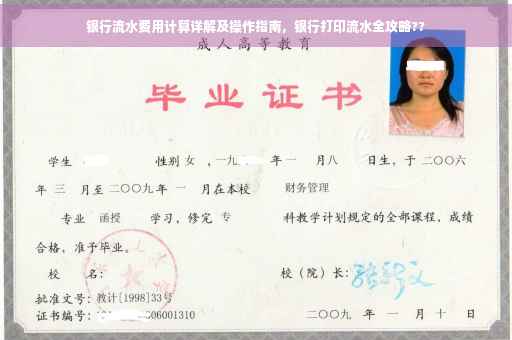 银行流水费用计算详解及操作指南，银行打印流水全攻略??
成人高等教育
毕业证书
学生 性别 女 ，一九 年 一 月八 日生，于 二〇〇六
年 三 月至 二〇〇九 年 一 月在本校 财务管理
专业 函授 学习，修完 专 科教学计划规定的全部课程，成绩
合格，准予毕业。
校 名： 校（院）长：
批准文号：教计[1998]33号
证书编号： 06001310 二〇〇九 年 一 月 十 日